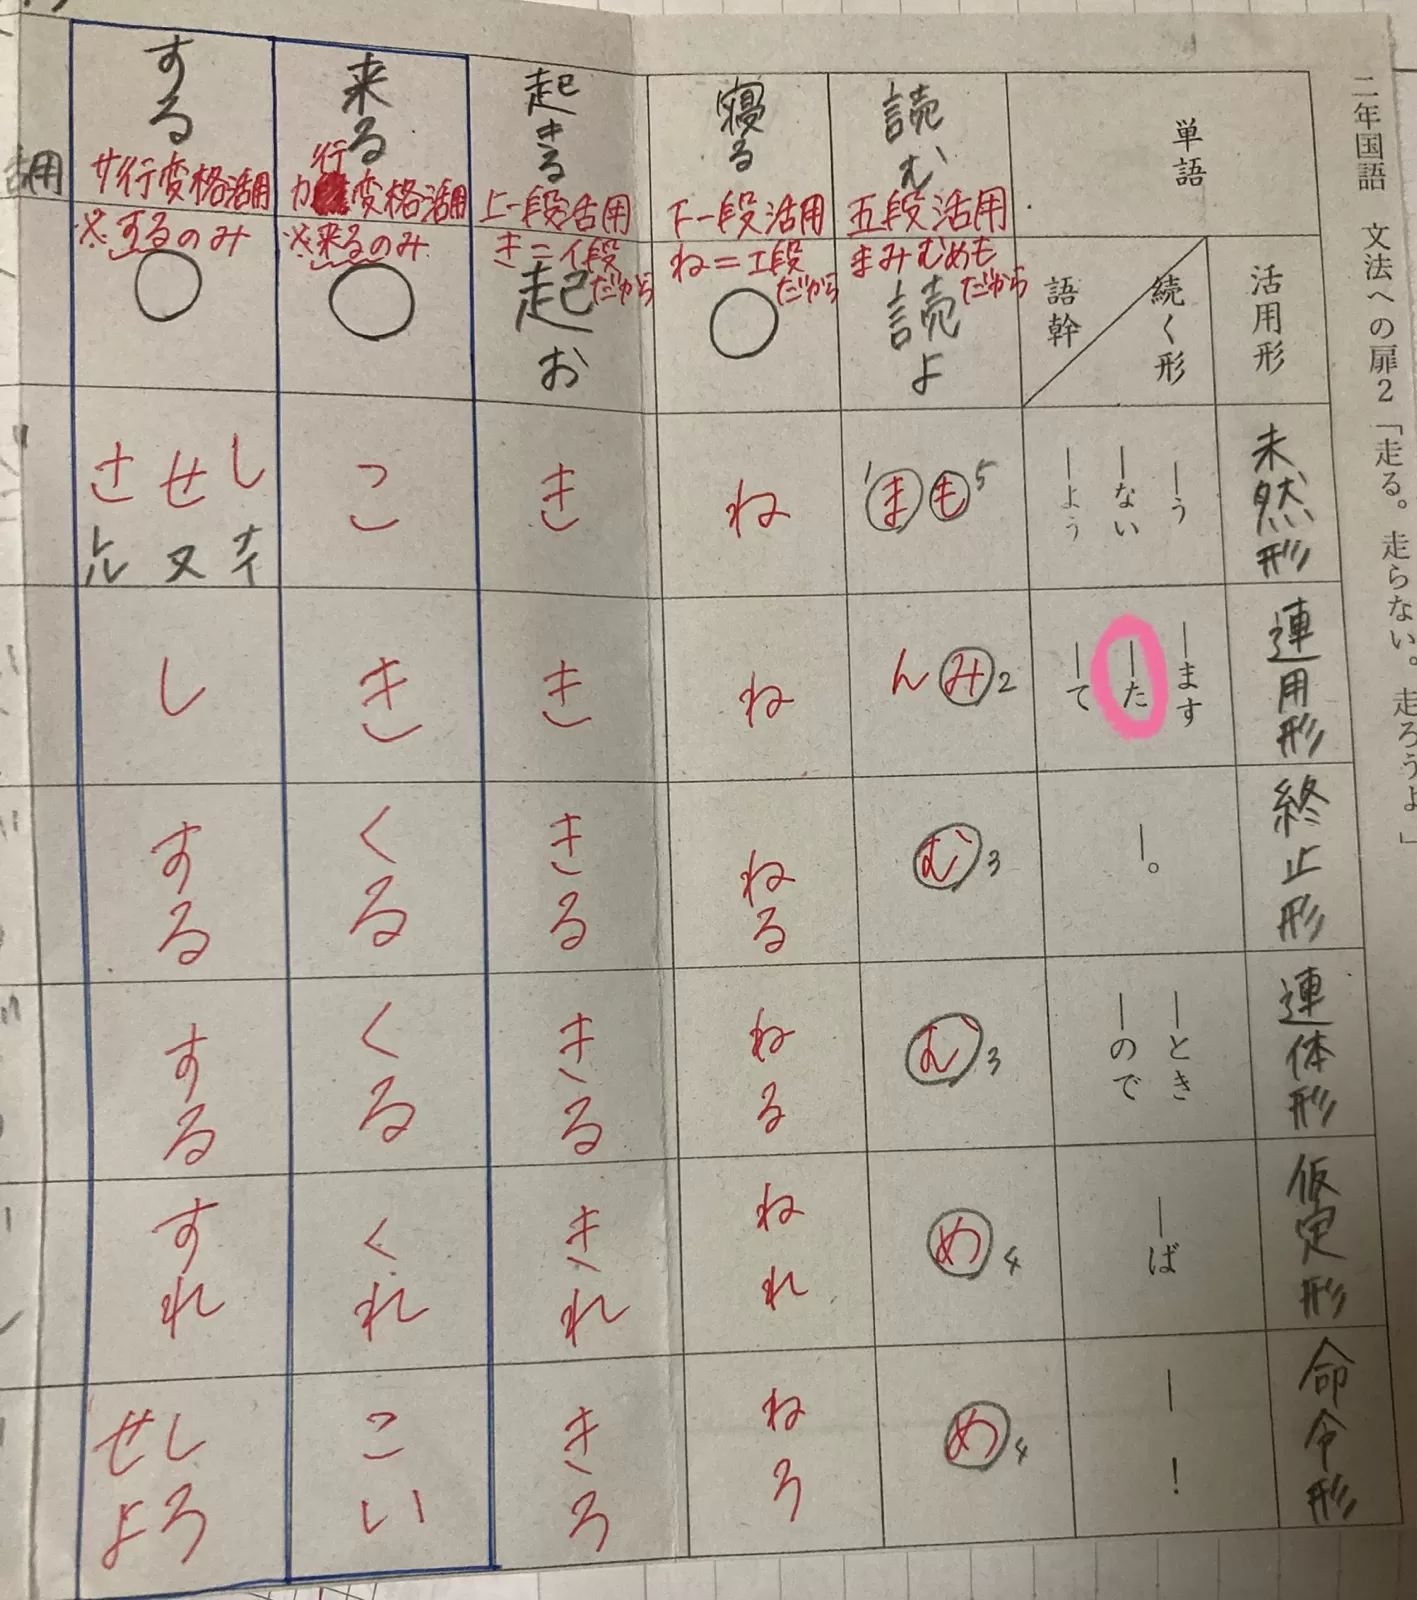 二年国語 文法への扉2「走る。走らない。走ろうよ」
単語
活用形
続く形
語幹
未然形
―う
―ない
―よう
連用形
―ます
―た
―て
終止形
―。
連体形
―とき
―ので
仮定形
―ば
命令形
―！
読む
五段活用
まみむめも
だから
読よ
も5
1ま
み2
ん
む3
む3
め4
め4
寝る
下一段活用
ね=エ段
だから
○
ね
ね
ねる
ねる
ねれ
ねろ
起きる
上一段活用
き=イ段
だから
起お
き
き
きる
きる
きれ
きろ
来る
カ行変格活用
※来るのみ
○
こ
き
くる
くる
くれ
こい
する
サ行変格活用
※するのみ
○
し
せ
さ
ナイ
ヌ
レル
し
する
する
すれ
しろ
せよ
活用